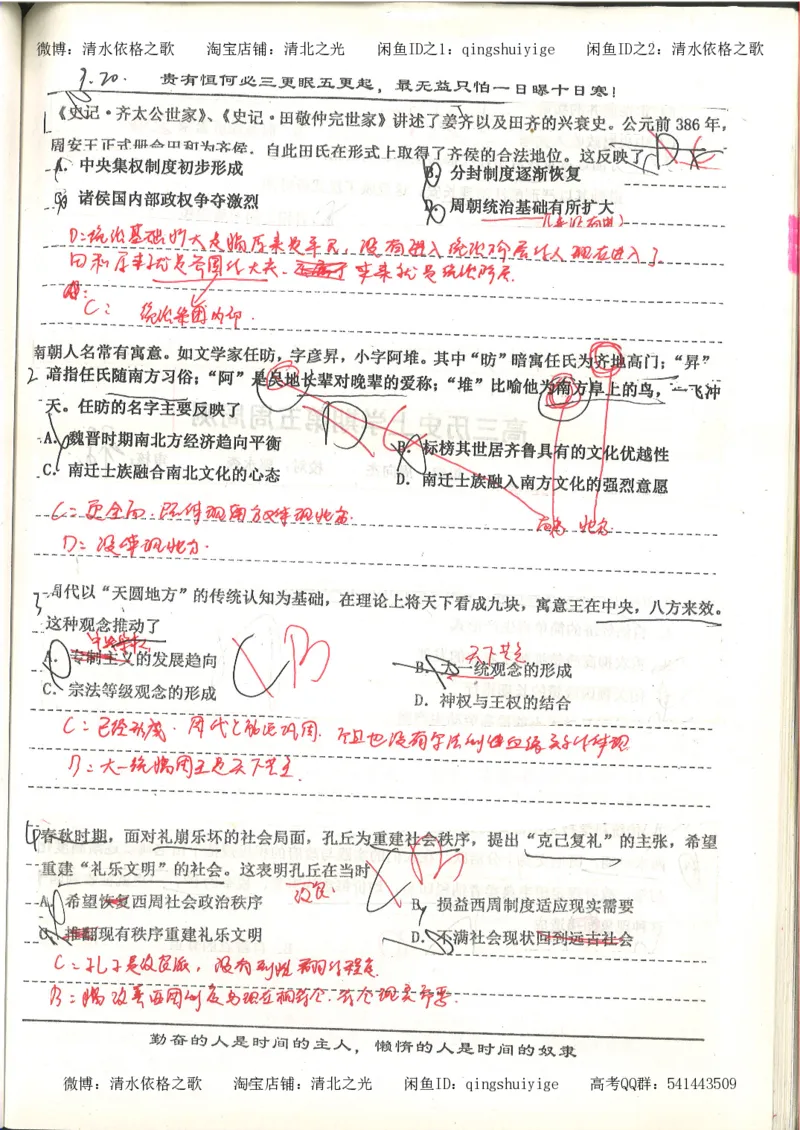 微博：清水依格之歌 淘宝店铺：清北之光 闲鱼ID之1：qingshuiyige 闲鱼ID之2：清水依格之歌
9.20. 贵有恒何必三更眠五更起，最无益只怕一日曝十日寒！
1 《史记·齐太公世家》、《史记·田敬仲完世家》讲述了姜齐以及田齐的兴衰史。公元前 386 年，
周安王正式册命田和为齐侯，自此田氏在形式上取得了齐侯的合法地位。这反映了 D C
A. 中央集权制度初步形成 B. 分封制度逐渐恢复
C. 诸侯国内部政权争夺激烈 D. 周朝统治基础有所扩大
D：统治基础扩大是指原来是平民，没有进入统治阶层的人现在进入了
田和原来就是齐国的大夫、本来就是统治阶层.
C： 统治集团内部.
南朝人名常有寓意。如文学家任昉，字彦昇，小字阿堆。其中“昉”暗寓任氏为齐地高门；“昇”
2 暗指任氏随南方习俗；“阿”是吴地长辈对晚辈的爱称；“堆”比喻他为南方阜上的鸟，一飞冲
天。任昉的名字主要反映了 D C
A. 魏晋时期南北方经济趋向平衡 B. 标榜其世居齐鲁具有的文化优越性
C. 南迁士族融合南北文化的心态 D. 南迁士族融入南方文化的强烈意愿
C：更全面. 既体现南方又体现北方. 南方 北方
D：没体现北方.
3 周代以“天圆地方”的传统认知为基础，在理论上将天下看成九块，寓意王在中央，八方来效。
这种观念推动了
中央集权 C B 天下共主
A. 专制主义的发展趋向 B. 大一统观念的形成
C. 宗法等级观念的形成 D. 神权与王权的结合
C：已经形成. 周代已能说巩固. 而且也没有宗法制地血缘关系的体现
B：大一统指周王是天下共主.
4 春秋时期，面对礼崩乐坏的社会局面，孔丘为重建社会秩序，提出“克己复礼”的主张，希望
重建“礼乐文明”的社会。这表明孔丘在当时 C B
改良.
A. 希望恢复西周社会政治秩序 B. 损益西周制度适应现实需要
C. 推翻现有秩序重建礼乐文明 D. 不满社会现状回到远古社会
C：孔子是改良派，没有到推翻的程度.
B：指改善西周制度
勤奋的人是时间的主人，懒惰的人是时间的奴隶
微博：清水依格之歌 淘宝店铺：清北之光 闲鱼ID：qingshuiyige 高考QQ群：541443509